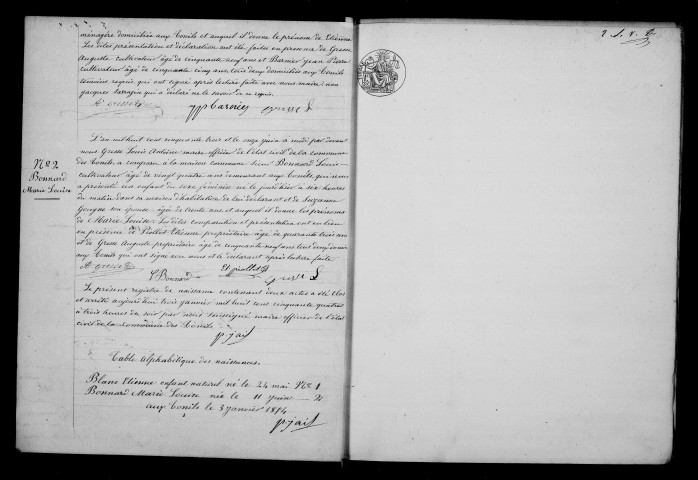 ménagère domiciliée aux Tonils et auquel il donne le prénom de Etienne
Les dites présentation et déclaration ont été faites en presence de Gresse
Auguste cultivateur âgé de cinquante neuf ans et Barnier jean Pierre
cultivateur âgé de cinquante cinq ans tous deux domiciliés aux Tonils
témoins requis qui ont signé après lecture faite avec nous maire : non
jacques Sarrazin qui a déclaré ne le savoir de ce requis.
A Gresse
gresse L
N° 2
Bonnard
Marie Louise
L'an mil huit cent cinquante trois et le onze juin à midi par devant
nous Gresse Louis Antoine maire officier de l'état civil de la commune
des Tonils a comparu à la maison commune sieur Bonnard Louis
cultivateur âgé de vingt quatre ans demeurant aux Tonils, qui nous
a présenté un enfant du sexe féminin né le jour d'hier à six heures
du matin dans sa maison d'habitation de lui déclarant et de Suzanne
son épouse âgée de trente ans et auquel il donne les prénoms
de Marie Louise. Les dites comparution et présentation ont eu lieu
en présence de Piallat Etienne propriétaire âgé de quarante trois ans
et de Gresse Auguste propriétaire âgé de cinquante neuf ans tous deux dom
aux Tonils qui ont signé avec nous et le déclarant après lecture faite
A Gresse
L Bonnard
Et piallat
gresse L
Le présent registre de naissance contenant deux actes a été clos
et arrêté aujourd'hui trois janvier mil huit cent cinquante quatre
à trois heures du soir par nous soussigné maire officier de l'état
civil de la commune des Tonils
p. jait
Table alphabétique des naissances.
Blanc Etienne enfant naturel né le 24 mai N° 1
Bonnard Marie Louise née le 11 juin 2
aux Tonils le 3 janvier 1854
p. jait